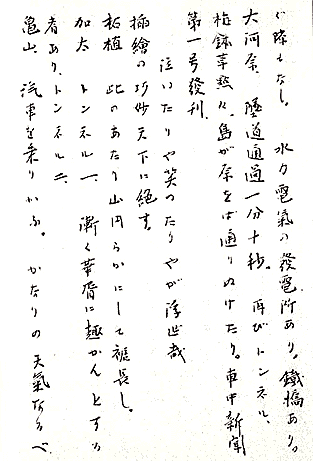 ぐ隙もなし。　水力電氣の發電所あり。鐵橋あり。
大河原、隧道通過一分十秒。　再びトンネル、
　　　　　　島が原をば通りぬけたり。車中新聞
第一号發刊。
　泣いたり　や笑つたり　やが浮世哉
揷繪の巧妙天下に絶す。
柘植　此のあたり山円らかにして裾長し。
加太　トンネル一、　漸く華胥に趣かんとする
者あり、トンネル二、
亀山、汽車を乗りかふ。　かなりの天氣なるべ